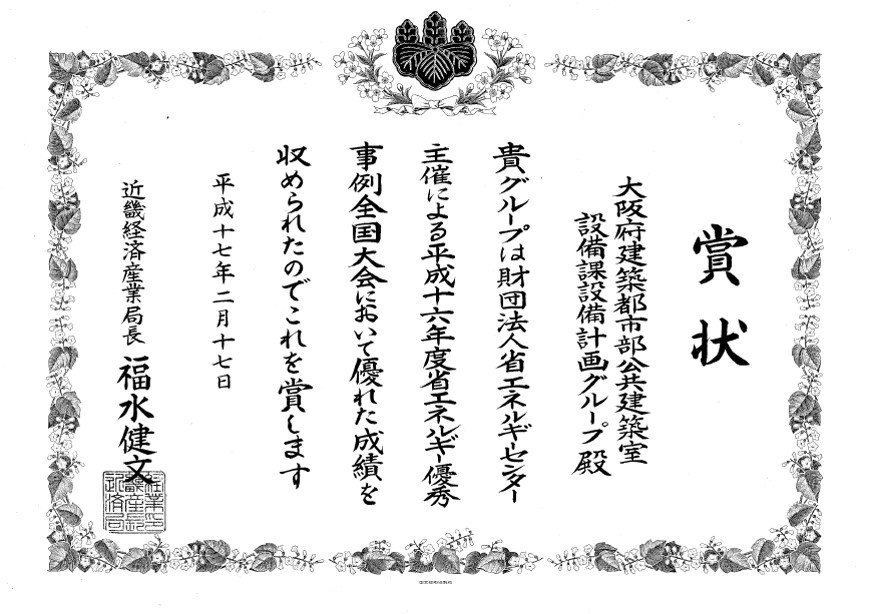 賞状
大阪府建築都市部公共建築室
設備課設備計画グループ殿
貴グループは財団法人省エネルギーセンター
主催による平成十六年度省エネルギー優秀
事例全国大会において優れた成績を
収められたのでこれを賞します
平成十七年二月十七日
近畿経済産業局長 福水健文